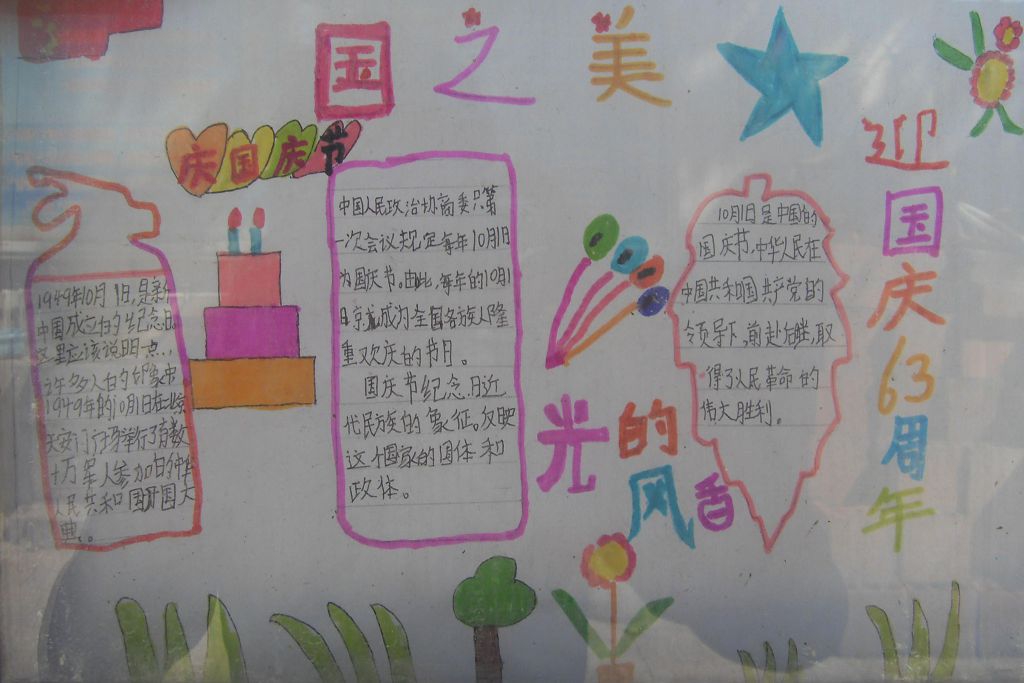 国之美
庆国庆节
迎国庆63周年
1949年10月1日,是新
中国成立的纪念日。
这里应该说明一点,
许多人的印象中
1949年的10月1日在北京
天安门广场举行了有数
十万军人参加的中华
人民共和国开国大
典。
中国人民政治协商委员第
一次会议规定每年10月1日
为国庆节。由此,每年的10月1
日就成为全国各族人隆
重欢庆的节日。
国庆节纪念日近
代民族的象征,反映
这个国家的国体和
政体。
光的
风香
10月1日是中国的
国庆节,中华人民在
中国共和国共产党的
领导下,前赴后继,取
得了人民革命的
伟大胜利。